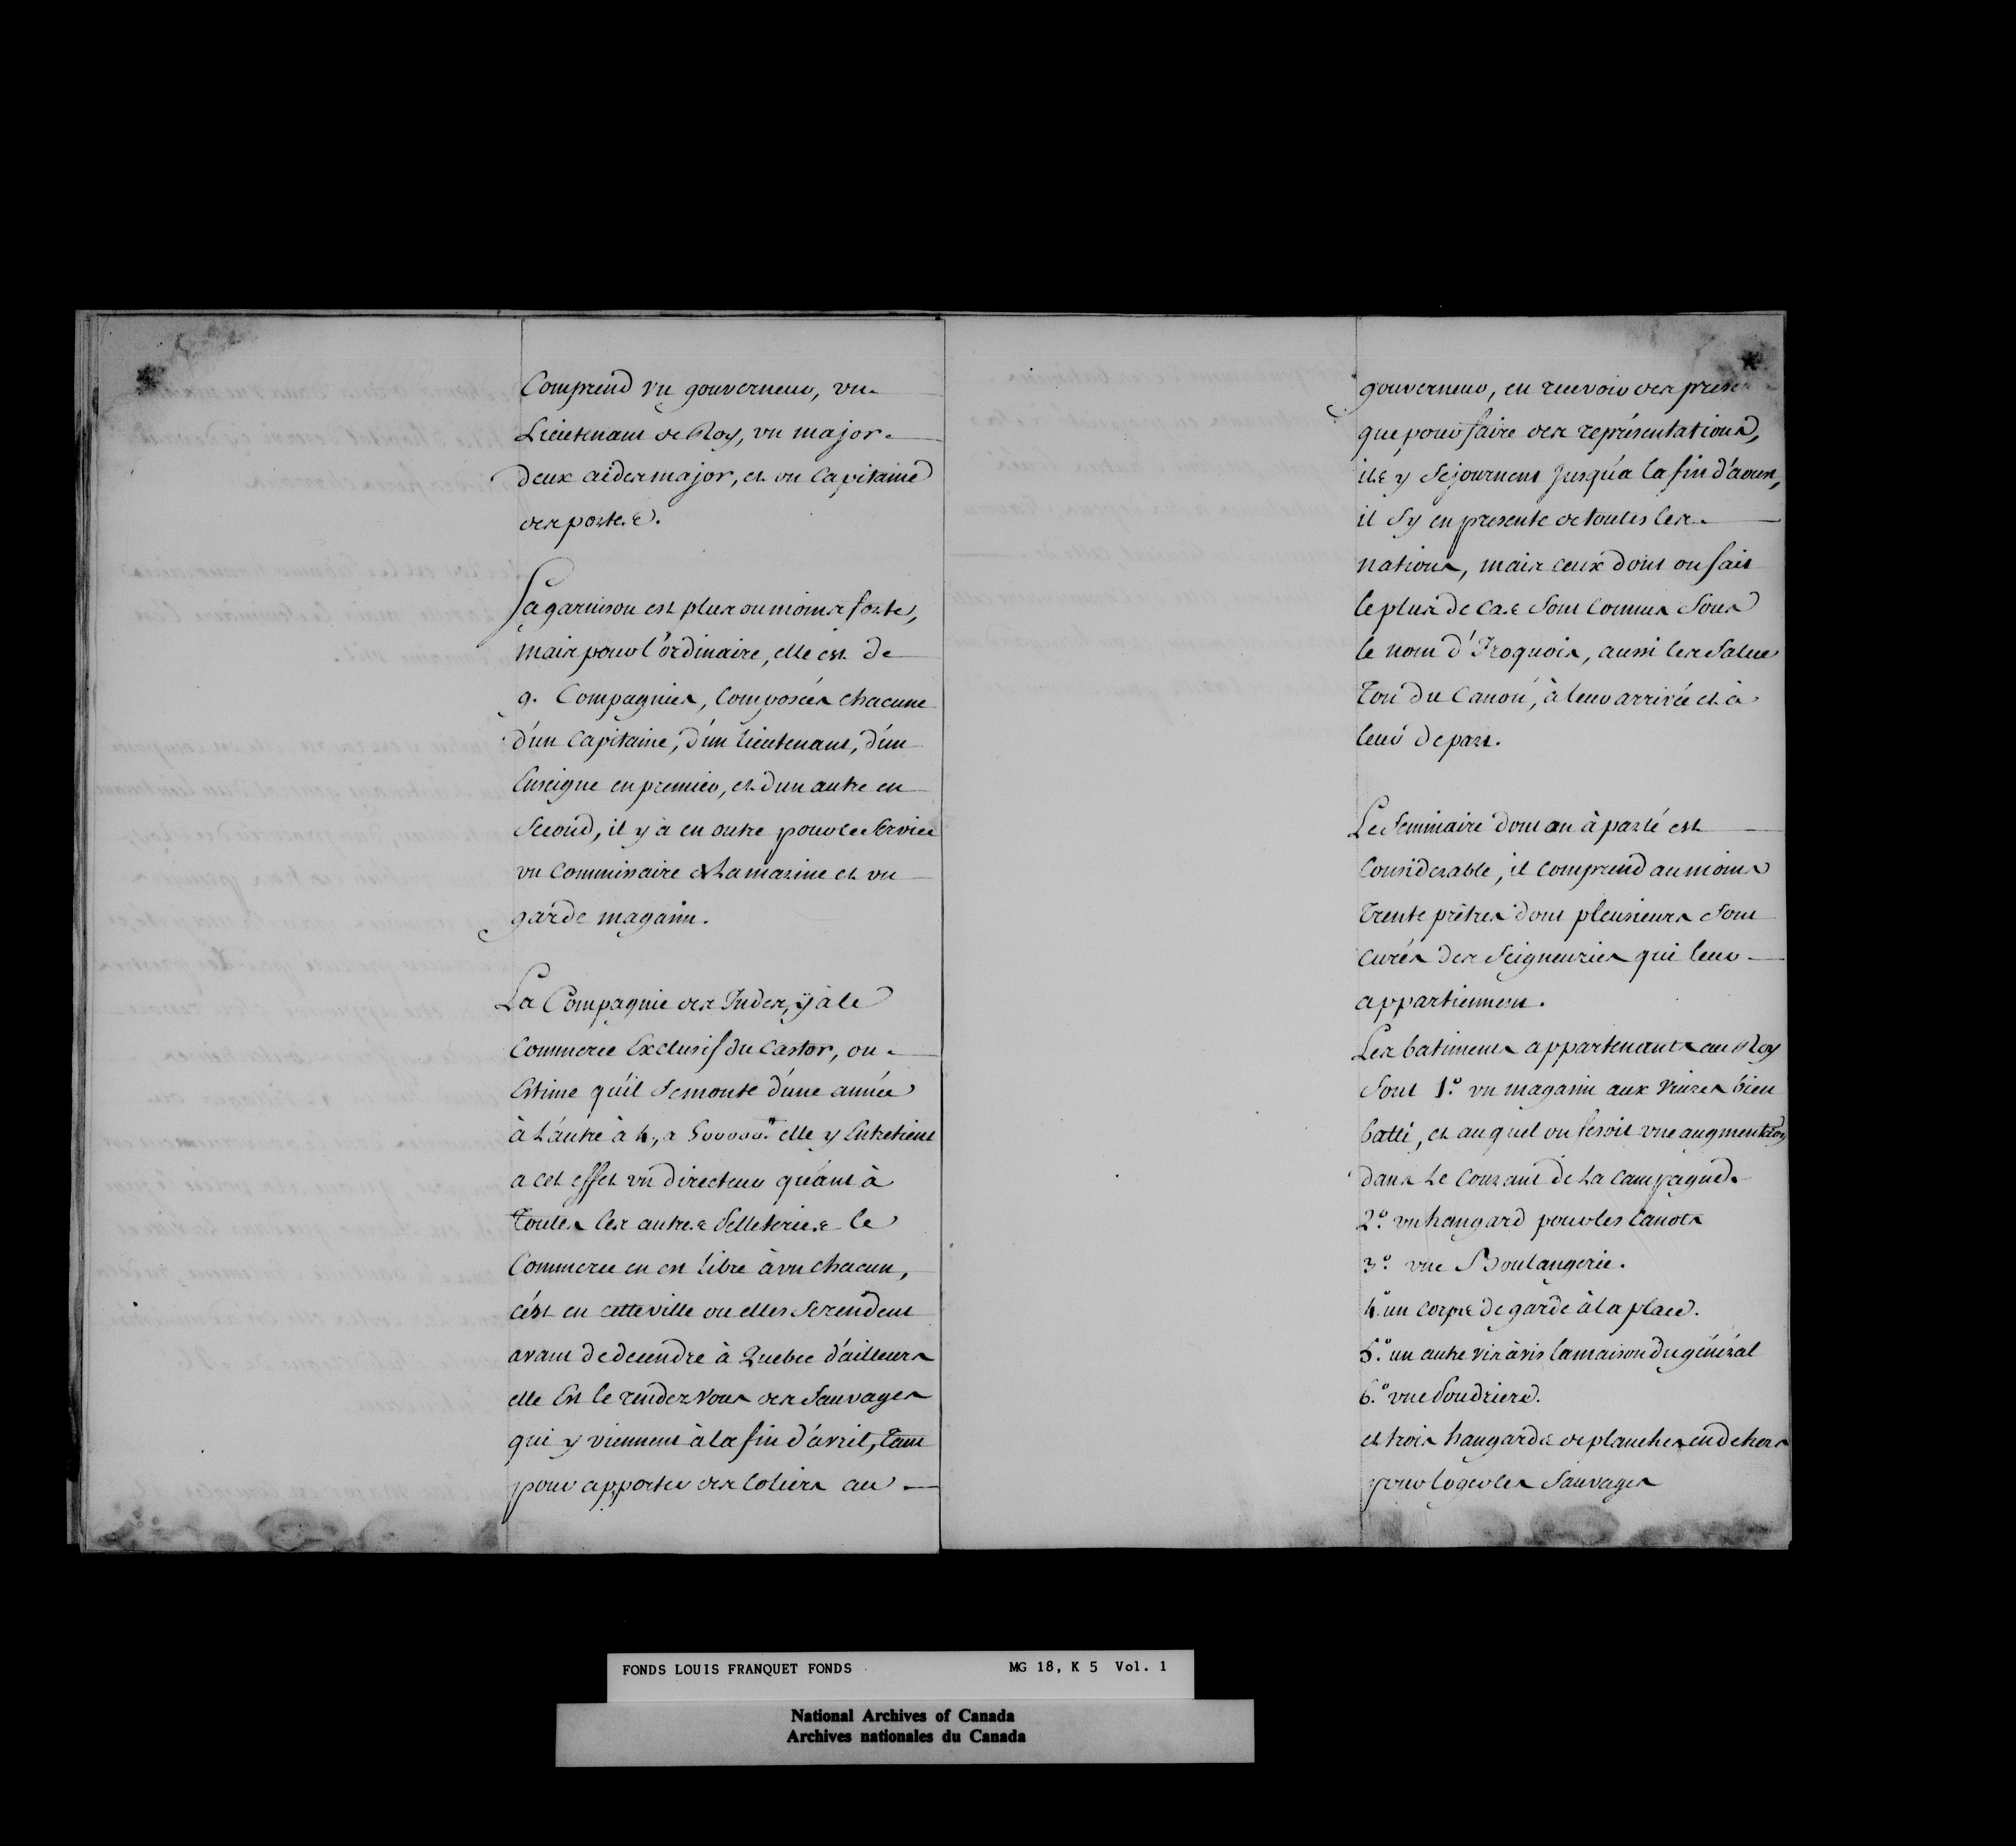 Comprend vn gouverneur, vn
Lieutenant de Roy, vn major
deux aides major, et vn Capitaine
des portes.
Sa garnison est plus ou moins forte,
mais pour l'ordinaire, elle est de
9. Compagnies, Composées chacune
d'un Capitaine, d'un Lieutenant, d'un
Enseigne en premier, et d'un autre en
Second, il y à en outre pour le Service
vn Commissaire de La marine et vn
garde magasin.
La Compagnie des Indes, y à le
Commerce Exclusif du Castor, on
Estime qu'il se monte d'une année
à L'autre à 4, a 500000.# elle y Entretient
a cet effet vn directeur quant à
Toutes les autres Pelleteries le
Commerce en est libre à vn chacun,
c'est en cette ville ou elles se rendent
avant de decendre à Quebec d'ailleurs
elle Est le rendez vous des Sauvages
qui y viennent à la fin d'avril, tant
pour apporter des Coliers au
gouverneur, en recevoir des presen
que pour faire des représentations,
ils y Sejournent Jusqu'a la fin d'aoust,
il s'y en presente de toutes les
nations, mais ceux dont on fait
le plus de Cas Sont Connus Sous
le nom d'Iroquois, aussi les Salue
Ton du Canon, à leur arrivée et à
leur depart.
Le Seminaire dont on à parlé est
Considerable, il Comprend au moins
Trente prêtres dont plusieurs Sont
curés des Seigneuries qui leur
appartiennent.
Les batiments appartenants au Roy
Sont 1.° vn magasin aux vivres bien
batti, et auquel on feroit vne augmentãon
dans Le Courant de La Campagne.
2.° vn hangard pour les Canots
3.° vne Boulangerie.
4.° un corps de garde à la place.
5.° un autre vis à vis la maison du général
6.° vne Poudriere.
et trois hangards de planches en dehors
pour loger les Sauvages
FONDS LOUIS FRANQUET FONDS MG 18, K 5 Vol. 1
National Archives of Canada
Archives nationales du Canada